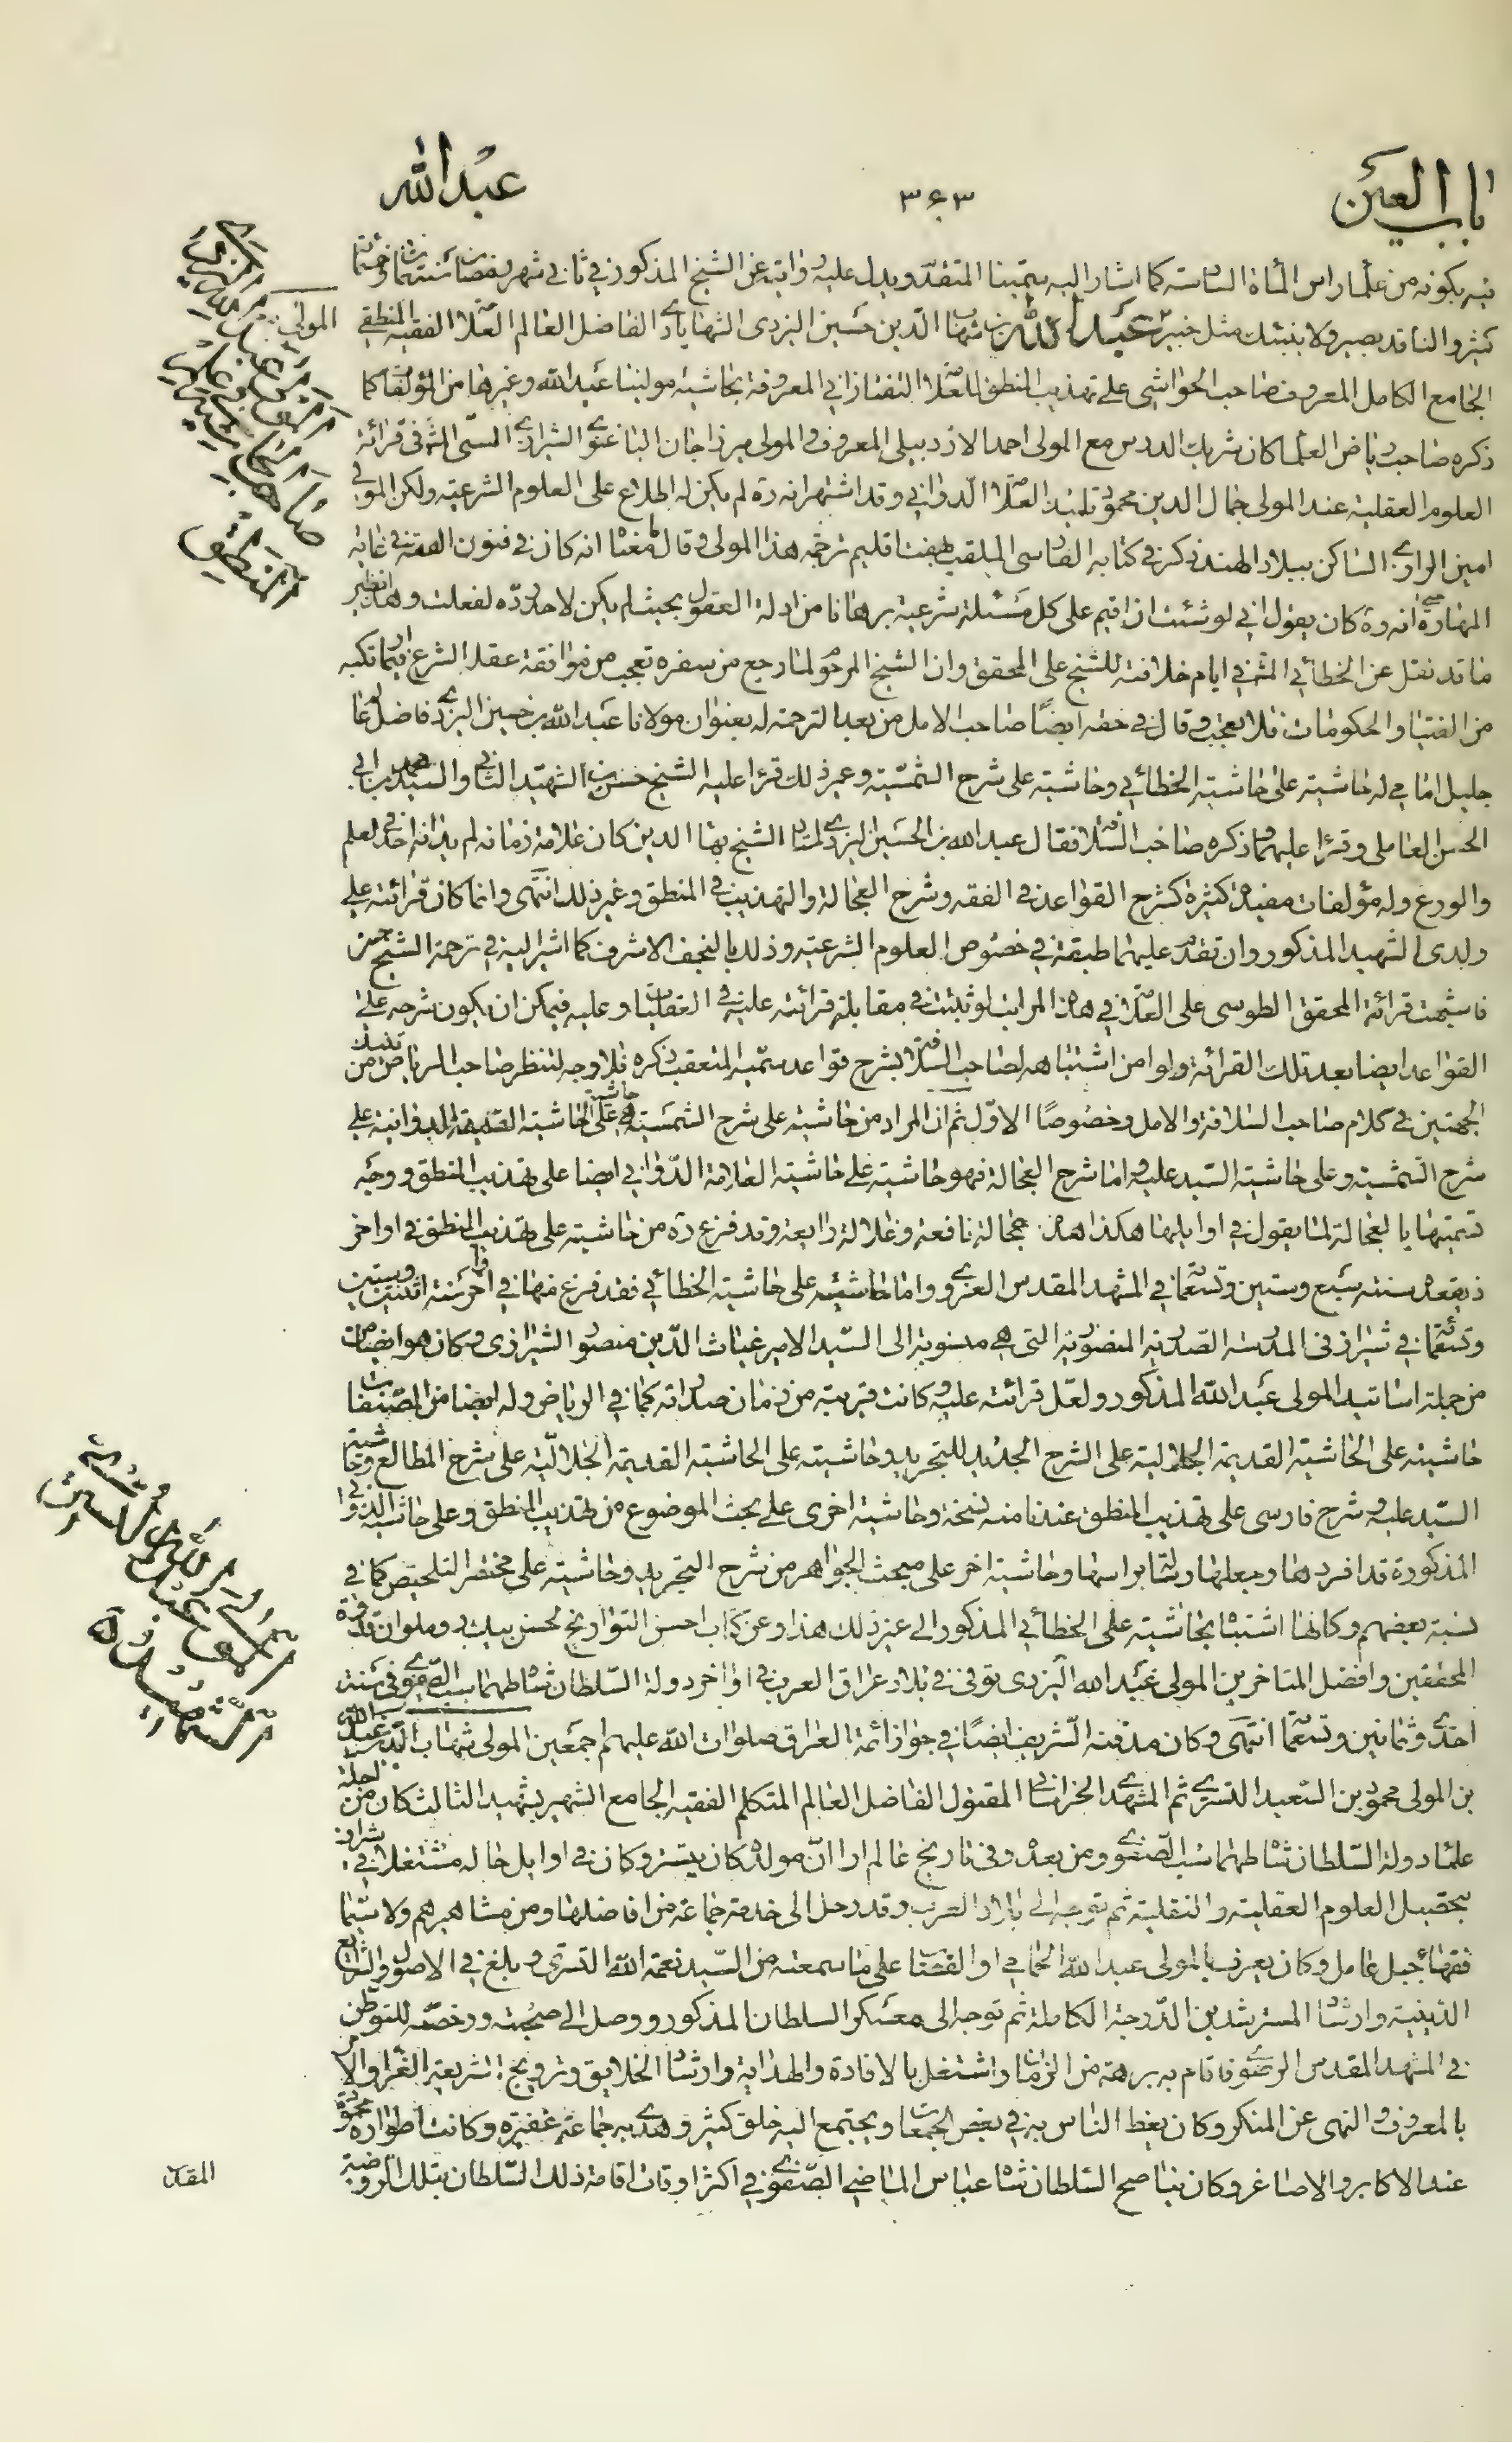 باب العين
٣٤٣
عبد الله
نيه بكونه من علماء راس المأة السادسة كما اشار اليه سمينا المتقدم ويدل عليه روايته عن الشيخ المذكور في ثاني شهر رمضان سنة ثمان وخمسمائة
كثير والناقد بصير ولا ينبئك مثل خبير المولى عبد الله بن شهاب الدين حسين اليزدى الشهابادى الفاضل العالم العلامة الفقيه المنطقي
الجامع الكامل المعروف صاحب الحواشي على تهذيب المنطق للعلامة التفتازاني المعروفة بحاشية مولينا عبد الله وغيرها من المؤلفات كما
ذكره صاحب رياض العلماء كان شريك الدرس مع المولى احمد الاردبيلى المعروف والمولى ميرزا جان الباغنوى الشيرازى السني الشهير في قرائة
العلوم العقلية عند المولى جمال الدين محمود تلميذ العلامة الدواني وقد اشتهر انه ره لم يكن له اطلاع على العلوم الشرعية ولكن المولى
امين الرازى الساكن ببلاد الهند ذكر في كتابه الفارسى الملقب بهفت اقليم ترجمة هذا المولى وقال ما معناه انه كان في فنون الفقه في غاية
المهارة حتى انه ره كان يقول اني لو شئت ان اقيم على كل مسئلة شرعية برهانا من ادلة العقول بحيث لم يكن لاحد رده لفعلت وهذا نظير
ما قد نقل عن الخطائي في ايام خلافته للشيخ على المحقق وان الشيخ المرحوم لما رجع من سفره تعجب من موافقة عقله الشرع فيما تكبه
من الفتيا والحكومات فلا تعجب وقال في حقه ايضا صاحب الامل من بعد الترجمة له بعنوان مولانا عبد الله بن حسين اليزدى فاضل عالم
جليل امامي له حاشية على حاشية الخطائي وحاشية على شرح الشمسية وغير ذلك قرء عليه الشيخ حسن بن الشهيد الثاني والسيد محمد بن ابي
الحسن العاملى وقرء عليهما وذكره صاحب السلافة فقال عبد الله بن الحسين اليزدى استاد الشيخ بهاء الدين كان علامة زمانه لم يدانه احد في العلم
والورع وله مؤلفات مفيدة كثيرة كشرح القواعد في الفقه وشرح العجالة والتهذيب في المنطق وغير ذلك انتهى وانما كان قرائته على
ولدى الشهيد المذكور وان تقدم عليهما طبقة في خصوص العلوم الشرعية وذلك بالنجف الاشرف كما اشير اليه في ترجمة الشيخ حسن
فاشبهت قرائة المحقق الطوسى على العلامة في هذا المراتب لو ثبتت في مقابلة قرائته عليه في العقليات وعليه فيمكن ان يكون شرحه على
القواعد ايضا بعد تلك القرائة او من اشتباه صاحب السلافة بشرح قواعد سميه المتعقب ذكره فلا وجه لتنظر صاحب الرياض من
الجهتين في كلام صاحب السلافة والامل وخصوصا الاول ثم ان المراد من حاشية على شرح الشمسية هي حاشية على الحاشية القديمة الدوانية على
شرح الشمسية وعلى حاشية السيد عليه واما شرح العجالة فهو حاشية على حاشية العلامة الدواني ايضا على تهذيب المنطق ووجه
تسميتها بالعجالة لما يقول في اوايلها هكذا هذه عجالة نافعة وغلالة رايعة وقد فرغ ره من حاشيته على تهذيب المنطق في اواخر
ذيقعده سنة سبع وستين وتسعمائة في المشهد المقدس الغروى واما حاشيته على حاشية الخطائي فقد فرغ منها في اواخر سنة اثنتين وستين
وتسعمائة في شيراز في المدرسة الصدرية المنصورية التي هي منسوبة الى السيد الامير غياث الدين منصور الشيرازى وكان هو ايضا
من جملة اساتيد المولى عبد الله المذكور ولعل قرائته عليه كانت قريبة من زمان صدارته كما في الرياض وله ايضا من المصنفات
حاشية على الحاشية القديمة الجلالية على الشرح الجديد للتجريد وحاشية على الحاشية القديمة الجلالية على شرح المطالع وحاشية
السيد عليه وشرح فارسى على تهذيب المنطق عندنا منه نسخة وحاشية اخرى على بحث الموضوع من تهذيب المنطق وعلى حاشية الدواني
المذكورة قد افردها وجعلها رسالة براسها وحاشية اخر على مبحث الجواهر من شرح التجريد وحاشية على مختصر التلخيص كما في
نسبة بعضهم وكانها اشتبه بحاشية على الخطائي المذكور الى غير ذلك هذا وعن كتاب احسن التواريخ لحسن بيك روملو ان قدوة
المحققين وافضل المتاخرين المولى عبد الله اليزدى توفي في بلاد عراق العرب في اواخر دولة السلطان شاه طهماسب الصفوى في سنة
احدى وثمانين وتسعمائة انتهى وكان مدفنه الشريف ايضا في جوار ائمة العراق صلوات الله عليهم اجمعين المولى شهاب الدين عبد الله
بن المولى محمود بن السعيد التسترى ثم المشهدى الخراساني المقتول الفاضل العالم المتكلم الفقيه الجامع الشهير بشهيد الثالث كان من اجلة
علماء دولة السلطان شاه طهماسب الصفوى ومن بعده وفي تاريخ عالم ارا ان مولده كان بتستر وكان في اوايل حاله مشتغلا في شيراز
بتحصيل العلوم العقلية والنقلية ثم توجه الى بلاد العرب وقد دخل الى خدمة جماعة من افاضلها ومن مشاهيرهم ولا سيما
فقهاء جبل عامل وكان يعرف بالمولى عبد الله على ما سمعته من السيد نعمة الله التسترى وبلغ في الاصول والشرايع
الدينية وارشاد المسترشدين الدرجة الكاملة ثم توجه الى معسكر السلطان المذكور ووصل الى صحبته ورخصه للتوطن
في المشهد المقدس الرضوى فاقام به برهة من الزمان واشتغل بالافادة والهداية وارشاد الخلايق وترويج الشريعة الغراء والامر
بالمعروف والنهى عن المنكر وكان يعظ الناس به في بعض الجمعات ويجتمع اليه خلق كثير وهدى به جماعة غفيرة وكانت اطواره محمودة
عند الاكابر والاصاغر وكان يناصح السلطان شاه عباس الماضي الصفوى في اكثر اوقات اقامة ذلك السلطان بتلك الروضة
المقدسة